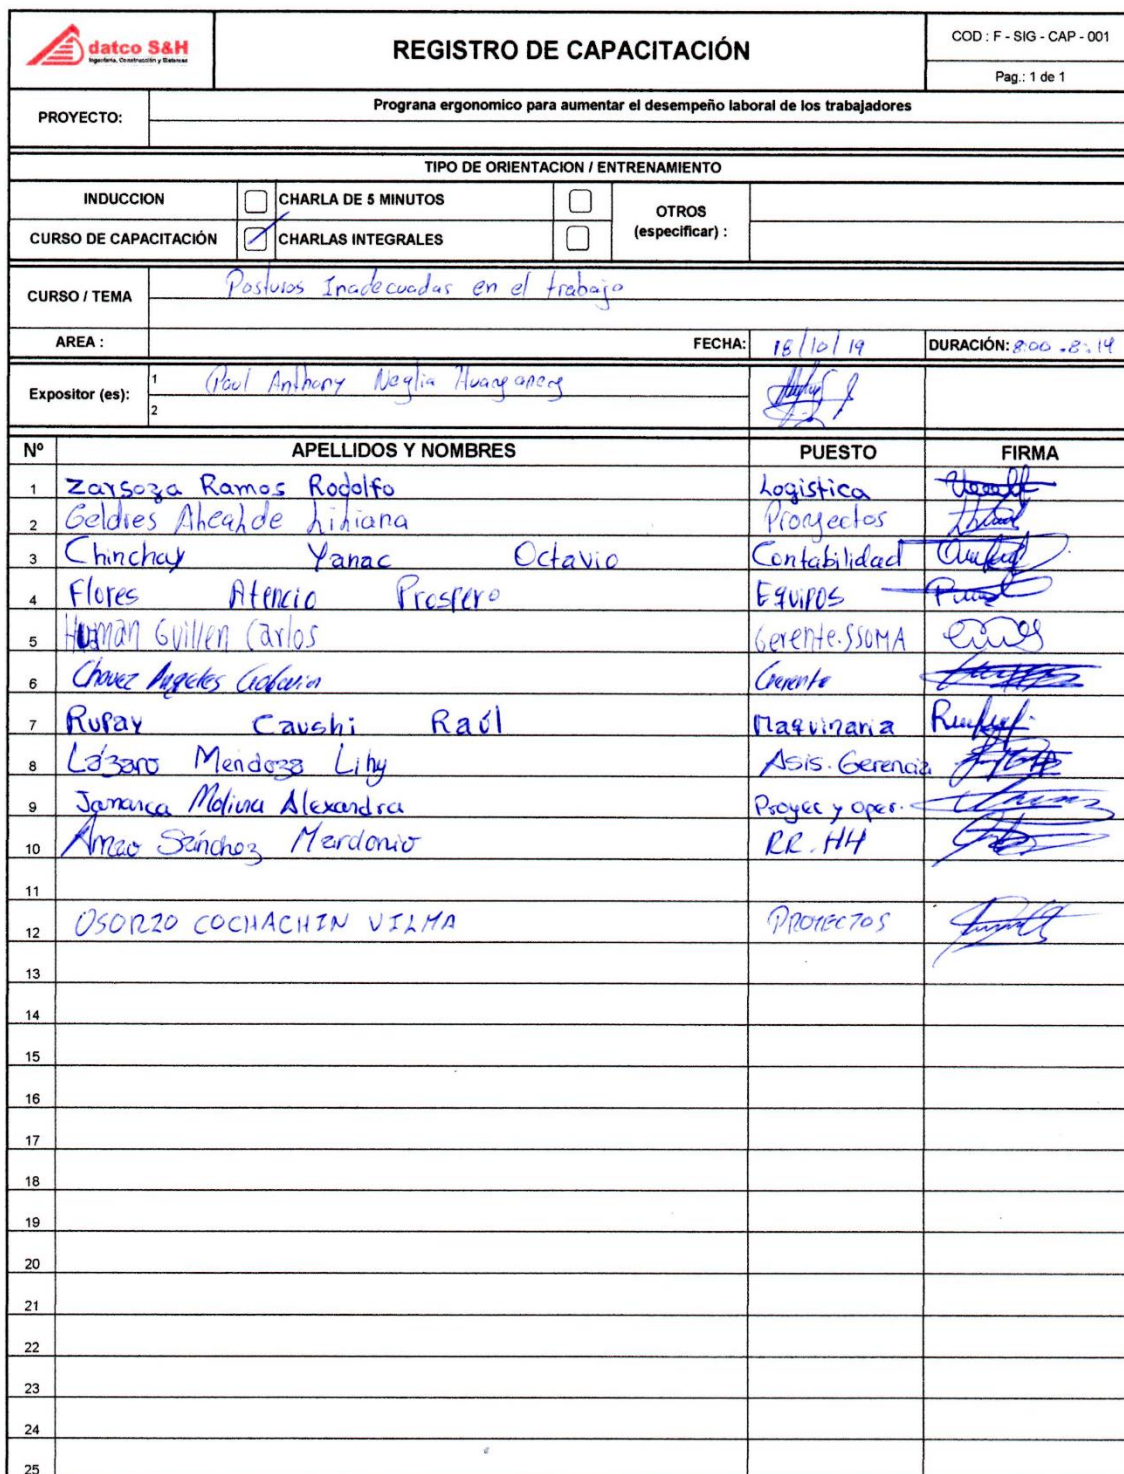 datco S&H
Ingeniería, Construcción y Sistemas
REGISTRO DE CAPACITACIÓN
COD : F - SIG - CAP - 001
Pag.: 1 de 1
PROYECTO:
Prograna ergonomico para aumentar el desempeño laboral de los trabajadores
TIPO DE ORIENTACION / ENTRENAMIENTO
INDUCCION
CHARLA DE 5 MINUTOS
OTROS
(especificar) :
CURSO DE CAPACITACIÓN
CHARLAS INTEGRALES
CURSO / TEMA
Posturas Inadecuadas en el trabajo
AREA :
FECHA: 18/10/19
DURACIÓN: 8:00 - 8:14
Expositor (es):
1 Paul Anthony Neglia
2
Nº APELLIDOS Y NOMBRES PUESTO FIRMA
1 Zarsoza Ramos Rodolfo Logistica
2 Geldres Liliana Proyectos
3 Chinchay Yanac Octavio Contabilidad
4 Flores Atencio Prospero EQUIPOS
5 Human Guillen Carlos Gerente.SSOMA
6 Chavez Angeles Gerente
7 Rupay Caushi Raúl Maquinaria
8 Lázaro Mendoza Lihy Asis. Gerencia
9 Jamanca Molina Alexandra Proyec y oper.
10 Amao Sánchez Mardonio RR.HH
11
12 OSORIO COCHACHIN VILMA PROYECTOS
13
14
15
16
17
18
19
20
21
22
23
24
25